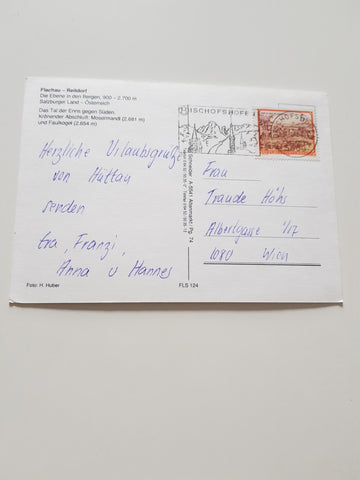 Flachau – Reitdorf
Die Ebene in den Bergen, 900 – 2.700 m
Salzburger Land – Österreich
Das Tal der Enns gegen Süden.
Krönender Abschluß: Mosermandl (2.681 m)
und Faulkogel (2.654 m)
Herzliche Urlaubsgrüße
von Hüttau
senden
Eva, Franzi,
Anna u Hannes
Foto: H. Huber
Schneider A-5541 Altenmarkt, Pg. 74
FLS 124
BISCHOFSHOFEN
Frau
Traude Höhs
Albertgasse 1/17
1080 Wien